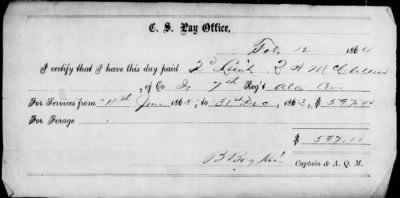 C. S. Pay Office,
Feb. 12 1864
I certify that I have this day paid 2d Lieut
of Co I 7th Reg't Ala Cav
For Services from 11th June 1863, to 31st Dec, 1863, $ 597.00
For Forage
$ 597.00
B Boykin Captain & A. Q. M.